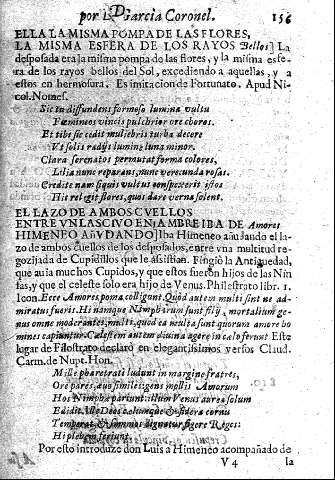 por D. Garcia Coronel. 156
ELLA LA MISMA POMPA DE LAS FLORES,
LA MISMA ESFERA DE LOS RAYOS Bellos] La
desposada era la misma pompa de las flores, y la misma esfe
ra de los rayos bellos del Sol, excediendo a aquellas, y a
estos en hermosura. Es imitacion de Fortunato. Apud Ni
col. Nomes.
Sic in diffundens formoso lumina vultu
Fœmineos vincis pulchrior ore choros.
Et tibi sic cedit muliebris turba decere
Vt solis radijs lumine luna minor.
Clara serenatos permutat forma colores,
Lilia nunc reparans, nunc verecunda rosas.
Credite nam siquis vultus conspexerit istos
Hic religit flores, quos dare verna solent.
EL LAZO DE AMBOS CVELLOS
ENTRE VN LASCIVO ENJAMBRE IBA DE Amores
HIMENEO AñVDANDO] Iba Himeneo añudando el la-
zo de ambos cuellos de los desposados, entre vna multitud re
gozijada de Cupidillos que le assistian. Fingiò la Antiguedad,
que auia muchos Cupidos, y que estos fueron hijos de las Nin
fas, y que el celeste solo era hijo de Venus. Philestrato libr. 1.
Icon. Ecce Amores poma colligunt. Quòd autem multi sint ne ad-
miratus fueris. Hi namque Nimpharum sunt filij, mortalium ge-
nus omne moderantes, multi, quod ea multa sunt quorum amore ho
mines capiuntur. Cælestem autem diuina agere in cælo ferunt. Este
lugar de Filostrato declarò en elegantissimos versos Claud.
Carm. de Nupt. Hon.
Mille pharetrati ludunt in margine fratres,
Ore pares, æuo similes gens mollis Amorum
Hos Nimphæ pariunt: illum Venus aurea solum
Edidit. Ille Deos cælumque & sidera cornu
Temperat & summos dignatur figere Reges:
Hi plebem feriunt.
Por esto introduze don Luis a Himeneo acompañado de
V 4 la